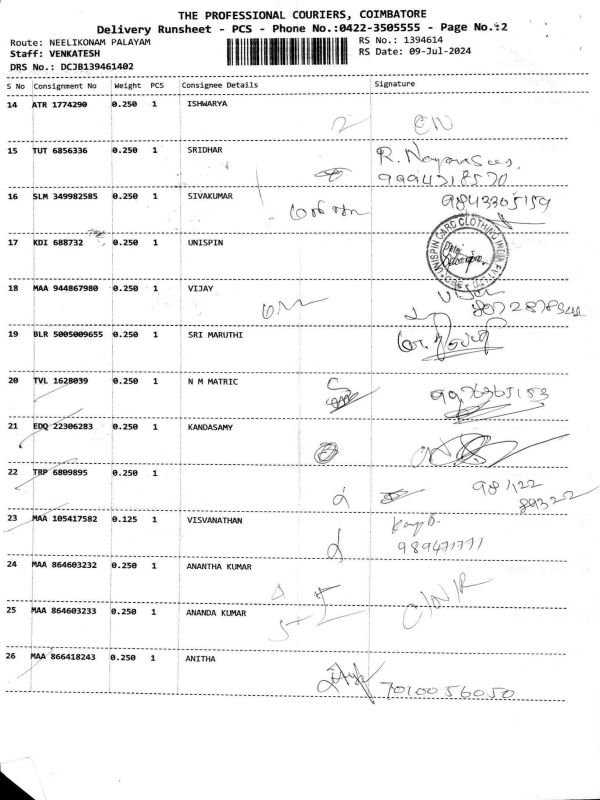 THE PROFESSIONAL COURIERS, COIMBATORE
Delivery Runsheet - PCS - Phone No.:0422-3505555 - Page No.:2
Route: NEELIKONAM PALAYAM
RS No.: 1394614
Staff: VENKATESH
RS Date: 09-Jul-2024
DRS No.: DCJB139461402
S No Consignment No Weight PCS Consignee Details Signature
14 ATR 1774290 0.250 1 ISHWARYA
15 TUT 6856336 0.250 1 SRIDHAR
16 SLM 349982585 0.250 1 SIVAKUMAR
9843365159
17 KDI 688732 0.250 1 UNISPIN
UNISPIN CARD CLOTHING INDIA PVT LTD
18 MAA 944867980 0.250 1 VIJAY
19 BLR 5005009655 0.250 1 SRI MARUTHI
20 TVL 1628039 0.250 1 N M MATRIC
9976365153
21 EDQ 22306283 0.250 1 KANDASAMY
22 TRP 6809895 0.250 1
981122
89322
23 MAA 105417582 0.125 1 VISVANATHAN
24 MAA 864603232 0.250 1 ANANTHA KUMAR
25 MAA 864603233 0.250 1 ANANDA KUMAR
26 MAA 866418243 0.250 1 ANITHA
7010056050